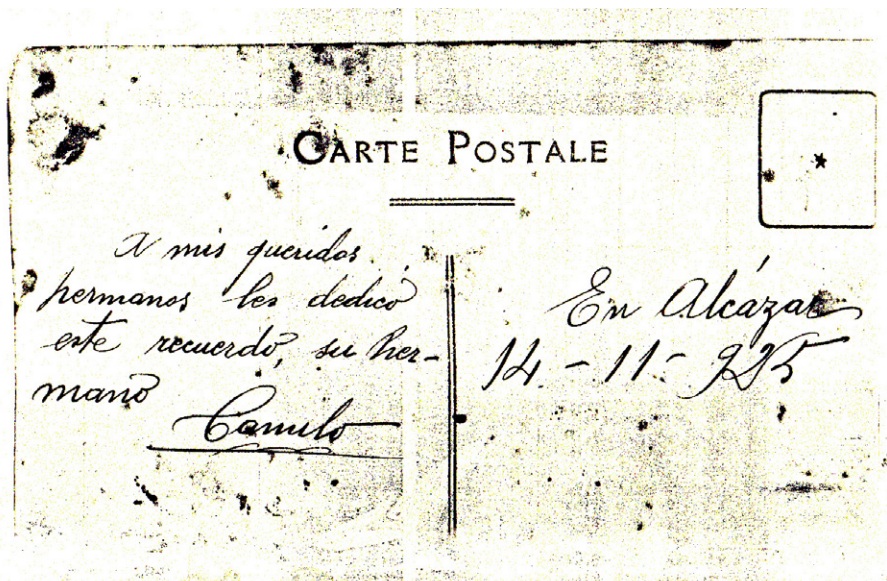 CARTE POSTALE
A mis queridos
hermanos les dedicó
este recuerdo, su her-
mano
Camilo
En Alcázar
14-11-925